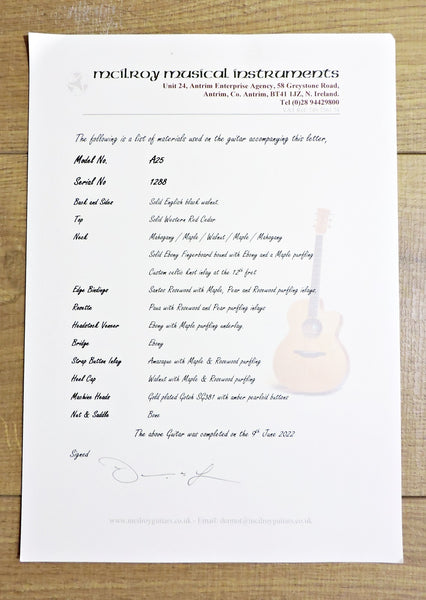 mcilroy musical instruments
Unit 24, Antrim Enterprise Agency, 58 Greystone Road,
Antrim, Co. Antrim, BT41 1JZ, N. Ireland.
Tel (0)28 94429800
The following is a list of materials used on the guitar accompanying this letter,
Model No. A25
Serial No 1288
Back and Sides Solid English black walnut
Top Solid Western Red Cedar
Neck Mahogany / Maple / Walnut / Maple / Mahogany
Solid Ebony Fingerboard bound with Ebony and a Maple purfling
Custom celtic knot inlay at the 12th fret
Edge Bindings Santos Rosewood with Maple, Pear and Rosewood purfling inlays.
Rosette Paua with Rosewood and Pear purfling inlays
Headstock Veneer Ebony with Maple purfling underlay.
Bridge Ebony
Strap Button Inlay Amazaque with Maple & Rosewood purfling
Heel Cap Walnut with Maple & Rosewood purfling
Machine Heads Gold plated Gotoh SG381 with amber pearloid buttons
Nut & Saddle Bone
The above Guitar was completed on the 9th June 2022
Signed
www.mcilroyguitars.co.uk - Email: dermot@mcilroyguitars.co.uk